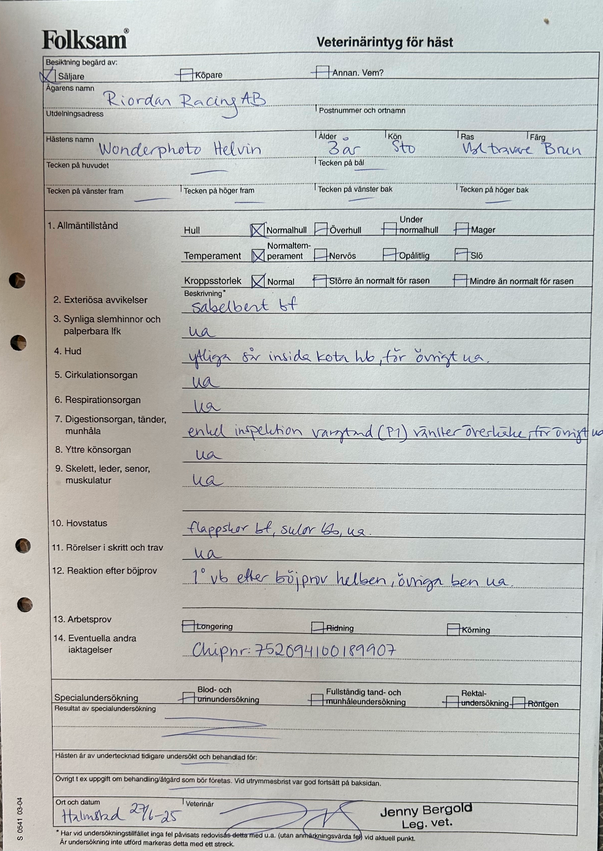 Folksam®
Veterinärintyg för häst
Besiktning begärd av:
Säljare Köpare Annan. Vem?
Ägarens namn
Riordan Racing AB
Utdelningsadress Postnummer och ortnamn
Hästens namn Ålder Kön Ras Färg
Wonderphoto Helvin 3 år Sto travare Brun
Tecken på huvudet Tecken på bål
Tecken på vänster fram Tecken på höger fram Tecken på vänster bak Tecken på höger bak
1. Allmäntillstånd
Hull Normalhull Överhull Under normalhull Mager
Temperament Normaltemperament Nervös Opålitlig Slö
Kroppsstorlek Normal Större än normalt för rasen Mindre än normalt för rasen
Beskrivning*
2. Exteriösa avvikelser Sabelbent bf
3. Synliga slemhinnor och
palperbara lfk ua
4. Hud ytliga sår insida kota hb, för övrigt ua.
5. Cirkulationsorgan ua
6. Respirationsorgan ua
7. Digestionsorgan, tänder,
munhåla enkel inspektion vargtand (P1) vänster överkäke, för övrigt ua
8. Yttre könsorgan ua
9. Skelett, leder, senor,
muskulatur ua
10. Hovstatus flappskor bf, sulor bb, ua.
11. Rörelser i skritt och trav ua
12. Reaktion efter böjprov 1° vb efter böjprov helben, övriga ben ua
13. Arbetsprov Longering Ridning Körning
14. Eventuella andra
iakttagelser Chipnr: 752094100189907
Specialundersökning Blod- och urinundersökning Fullständig tand- och munhåleundersökning Rektal-undersökning Röntgen
Resultat av specialundersökning
Hästen är av undertecknad tidigare undersökt och behandlad för:
Övrigt t ex uppgift om behandling/åtgärd som bör företas. Vid utrymmesbrist var god fortsätt på baksidan.
Ort och datum Veterinär
Halmstad 27/6-25
Jenny Bergold
Leg. vet.
* Har vid undersökningstillfället inga fel påvisats redovisas detta med u.a. (utan anmärkningsvärda fel) vid aktuell punkt.
Är undersökning inte utförd markeras detta med ett streck.
S 0541 03-04